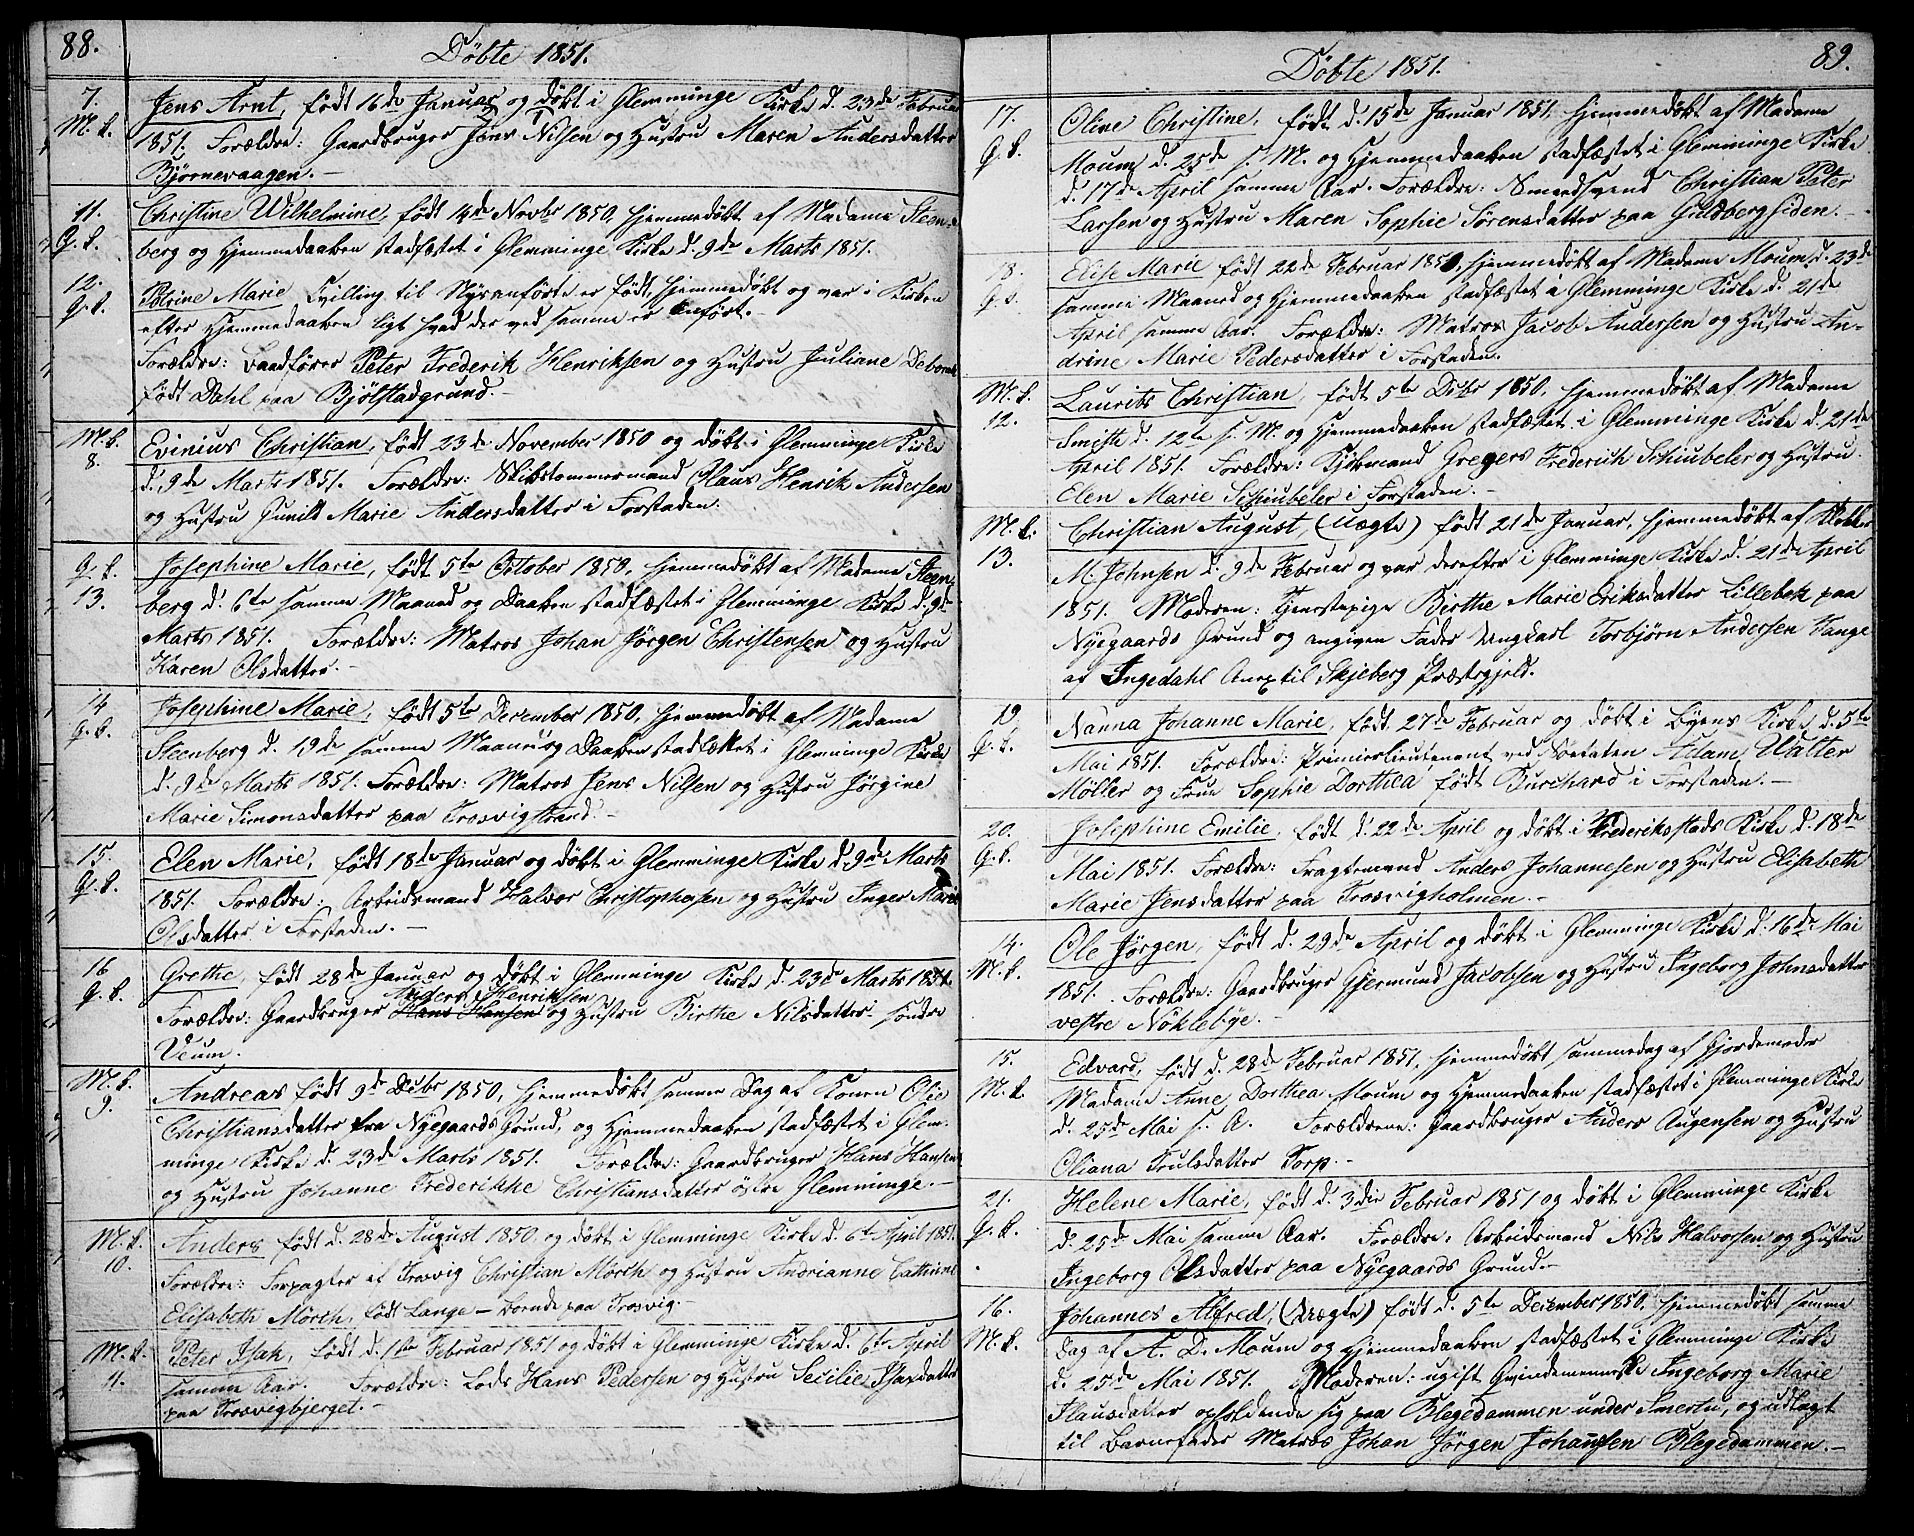 88.
Døbte 1851.
7.
M. k.
Jens Arnt, født 16de Januar og døbt i Glemminge Kirke d. 23de Februar
1851. Forældre: Gaardbruger Jens Nilsen og Hustru Maren Andersdatter
Bjørnevaagen. -
11.
Q. k.
Christine Wilhelmine, født 14de Novbr 1850, hjemmedøbt af Madame Steen-
berg og Hjemmedaaben stadfæstet i Glemminge Kirke d. 9de Marts 1851.
12.
Q. k.
Petrine Marie Tvilling til Nysanførte er født, hjemmedøbt og var i Kirken
efter Hjemmedaaben ligt hvad der ved samme er anført. -
Forældre: Baadfører Peter Frederik Henriksen og Hustru Juliane Debora
født Dahl paa Bjølstadgrund. -
M. k.
8.
Evinius Christian, født 23de November 1850 og døbt i Glemminge Kirke
d. 9de Marts 1851. Forældre: Skibstømmermand Claus Henrik Andersen
og Hustru Gunild Marie Andersdatter i Forstaden.
Q. k.
13.
Josephine Marie, født 5te October 1850, hjemmedøbt af Madame Steen-
berg d. 6te samme Maaned og Daaben stadfæstet i Glemminge Kirke d. 9de
Marts 1851. Forældre: Matros Johan Jørgen Christensen og Hustru
Karen Olsdatter. -
14
Q. k.
Josephine Marie, født 5te December 1850, hjemmedøbt af Madame
Steenberg d. 19de samme Maaned og Daaben stadfæstet i Glemminge Kirke
d. 9de Marts 1851. Forældre: Matros Jens Nilsen og Hustru Jørgine
Marie Simonsdatter paa Trosvigstrand. -
15.
Q. k.
Elen Marie, født 18de Januar og døbt i Glemminge Kirke d. 9de Marts
1851. Forældre: Arbeidsmand Halvor Christophersen og Hustru Inger Marie
Olsdatter i Forstaden. -
16
Q. k.
Grethe, født 28de Januar og døbt i Glemminge Kirke d. 23de Marts 1851.
Anders Henriksen
Forældre: Gaardbruger Hans Hansen og Hustru Birthe Nilsdatter søndre
Veum.
M. k.
9.
Andreas født 9de Decbr 1850, hjemmedøbt samme Dag af Konen Olie
Christiansdatter fra Nyegaards Grund, og Hjemmedaaben stadfæstet i Glem-
minge Kirke d. 23de Marts 1851. Forældre: Gaardbruger Hans Hansen
og Hustru Johanne Frederikke Christiansdatter østre Glemminge. -
M. k.
10.
Anders født d. 28de August 1850 og døbt i Glemminge Kirke d. 6te April 1851.
Forældre: Forpagter af Trosvig Christian Mörch og Hustru Andrianne Cathrine
Elisabeth Mörch, født Lange - boende paa Trosvig. -
M. k.
11.
Peter Isak, født d. 1ste Februar 1851 og døbt i Glemminge Kirke d. 6te April
samme Aar. Forældre: Lods Hans Pedersen og Hustru Secilie Isaxdatter
paa Trosvigbjerget. -
89.
Døbte 1851.
17.
Q. k.
Oline Christine, født d. 15de Januar 1851, hjemmedøbt af Madame
Moum d. 25de s. M. og Hjemmedaaben stadfæstet i Glemminge Kirke
d. 17de April samme Aar. Forældre: Smedsvend Christian Peter
Larsen og Hustru Maren Sophie Sørensdatter paa Guldbergsiden. -
18.
Q. k.
Elise Marie født 22de Februar 1851, hjemmedøbt af Madame Moum d. 23de
samme Maaned og Hjemmedaaben stadfæstet i Glemminge Kirke d. 21de
April samme Aar. Forældre: Matros Jacob Andersen og Hustru An-
drine Marie Pedersdatter i Forstaden.
M. k.
12.
Laurits Christian, født 5te Decbr 1850, hjemmedøbt af Madame
Smith d. 12te s. M. og Hjemmedaaben stadfæstet i Glemminge Kirke d. 21de
April 1851. Forældre: Kjøbmand Gregers Frederich Schiubeler og Hustru
Elen Marie Schiubeler i Forstaden. -
M. k.
13.
Christian August, (Uægte) født 21de Januar, hjemmedøbt af Klokker
M. Johnsen d. 9de Februar og var derefter i Glemminge Kirke d. 21de April
1851. Moderen: Tjenestepige Birthe Marie Eriksdatter Lillebek paa
Nyegaards Grund og angiven Fader Ungkarl Torbjørn Andersen Tange
af Ingedahl Anex til Skjeberg Præstegjeld.
19
Q. k.
Nanna Johanne Marie, født 27de Februar og døbt i Byens Kirke d. 5te
Mai 1851. Forældre: Premierlieutenant ved Søetaten Adam Walter
Möller og Frue Sophie Dorthea født Burchard i Forstaden. -
20.
Q. k.
Josephine Emilie, født d. 22de April og døbt i Frederiksstads Kirke d. 18de
Mai 1851. Forældre: Fragtemand Anders Johannesen og Hustru Elisabeth
Marie Jensdatter paa Trosvigholmen. -
14.
M. k.
Ole Jørgen, født d. 29de April og døbt i Glemminge Kirke d. 16de Mai
1851. Forældre: Gaardbruger Gjermund Jacobsen og Hustru Ingeborg Johnsdatter
vestre Nøklebye. -
15.
M. k.
Edvard, født d. 28de Februar 1851, hjemmedøbt sammedag af Gjordemoder
Madame Anne Dorthea Moum og Hjemmedaaben stadfæstet i Glemminge Kirke
d. 25de Mai s. A. Forældrene: Gaardbruger Anders Augensen og Hustru
Oliana Trulsdatter Torp. -
21.
Q. k.
Helene Marie, født d. 3die Februar 1851 og døbt i Glemminge Kirke
d. 25de Mai samme Aar. Forældre: Arbeidsmand Nils Halvorsen og Hustru
Ingeborg Olsdatter paa Nyegaards Grund. -
16.
M. k.
Johannes Alfred, (Uægte) født d. 5te December 1850, hjemmedøbt samme
Dag af A. D. Moum og Hjemmedaaben stadfæstet i Glemminge Kirke
d. 25de Mai 1851. Moderen: ugift Qvindemenneske Ingeborg Marie
Klausdatter opholdende sig paa Blegedammen under Smertu, og udlagt
til Barnefader Matros Johan Jørgen Johansen Blegedammen. -